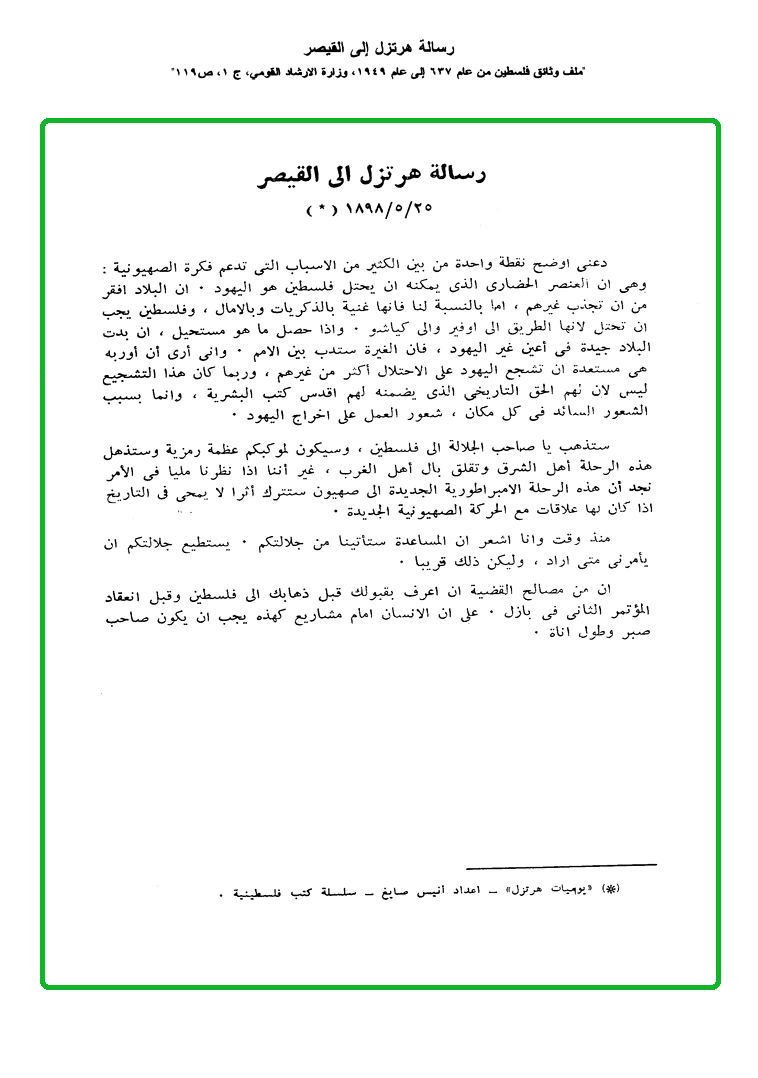 رسالة هرتزل إلى القيصر
"ملف وثائق فلسطين من عام ٦٣٧ إلى عام ١٩٤٩، وزارة الارشاد القومي، ج ١، ص١١٩"
رسالة هرتزل الى القيصر
٢٥/٥/١٨٩٨ ( * )
دعنى اوضح نقطة واحدة من بين الكثير من الاسباب التى تدعم فكرة الصهيونية :
وهى ان العنصر الحضارى الذى يمكنه ان يحتل فلسطين هو اليهود ٠ ان البلاد افقر
من ان تجذب غيرهم ، اما بالنسبة لنا فانها غنية بالذكريات وبالامال ، وفلسطين يجب
ان تحتل لانها الطريق الى اوفير والى كياشو ٠ واذا حصل ما هو مستحيل ، ان بدت
البلاد جيدة فى أعين غير اليهود ، فان الغيرة ستدب بين الامم ٠ وانى أرى أن أوربه
هى مستعدة ان تشجع اليهود على الاحتلال أكثر من غيرهم ، وربما كان هذا التشجيع
ليس لان لهم الحق التاريخى الذى يضمنه لهم اقدس كتب البشرية ، وانما بسبب
الشعور السائد فى كل مكان ، شعور العمل على اخراج اليهود ٠
ستذهب يا صاحب الجلالة الى فلسطين ، وسيكون لموكبكم عظمة رمزية وستذهل
هذه الرحلة أهل الشرق وتقلق بال أهل الغرب ، غير أننا اذا نظرنا مليا فى الأمر
نجد أن هذه الرحلة الامبراطورية الجديدة الى صهيون ستترك أثرا لا يمحى فى التاريخ
اذا كان لها علاقات مع الحركة الصهيونية الجديدة ٠
منذ وقت وانا اشعر ان المساعدة ستأتينا من جلالتكم ٠ يستطيع جلالتكم ان
يأمرنى متى اراد ، وليكن ذلك قريبا ٠
ان من مصالح القضية ان اعرف بقبولك قبل ذهابك الى فلسطين وقبل انعقاد
المؤتمر الثانى فى بازل ٠ على ان الانسان امام مشاريع كهذه يجب ان يكون صاحب
صبر وطول اناة ٠
(*) «يوميات هرتزل» ــ اعداد أنيس صايغ ــ سلسلة كتب فلسطينية ٠